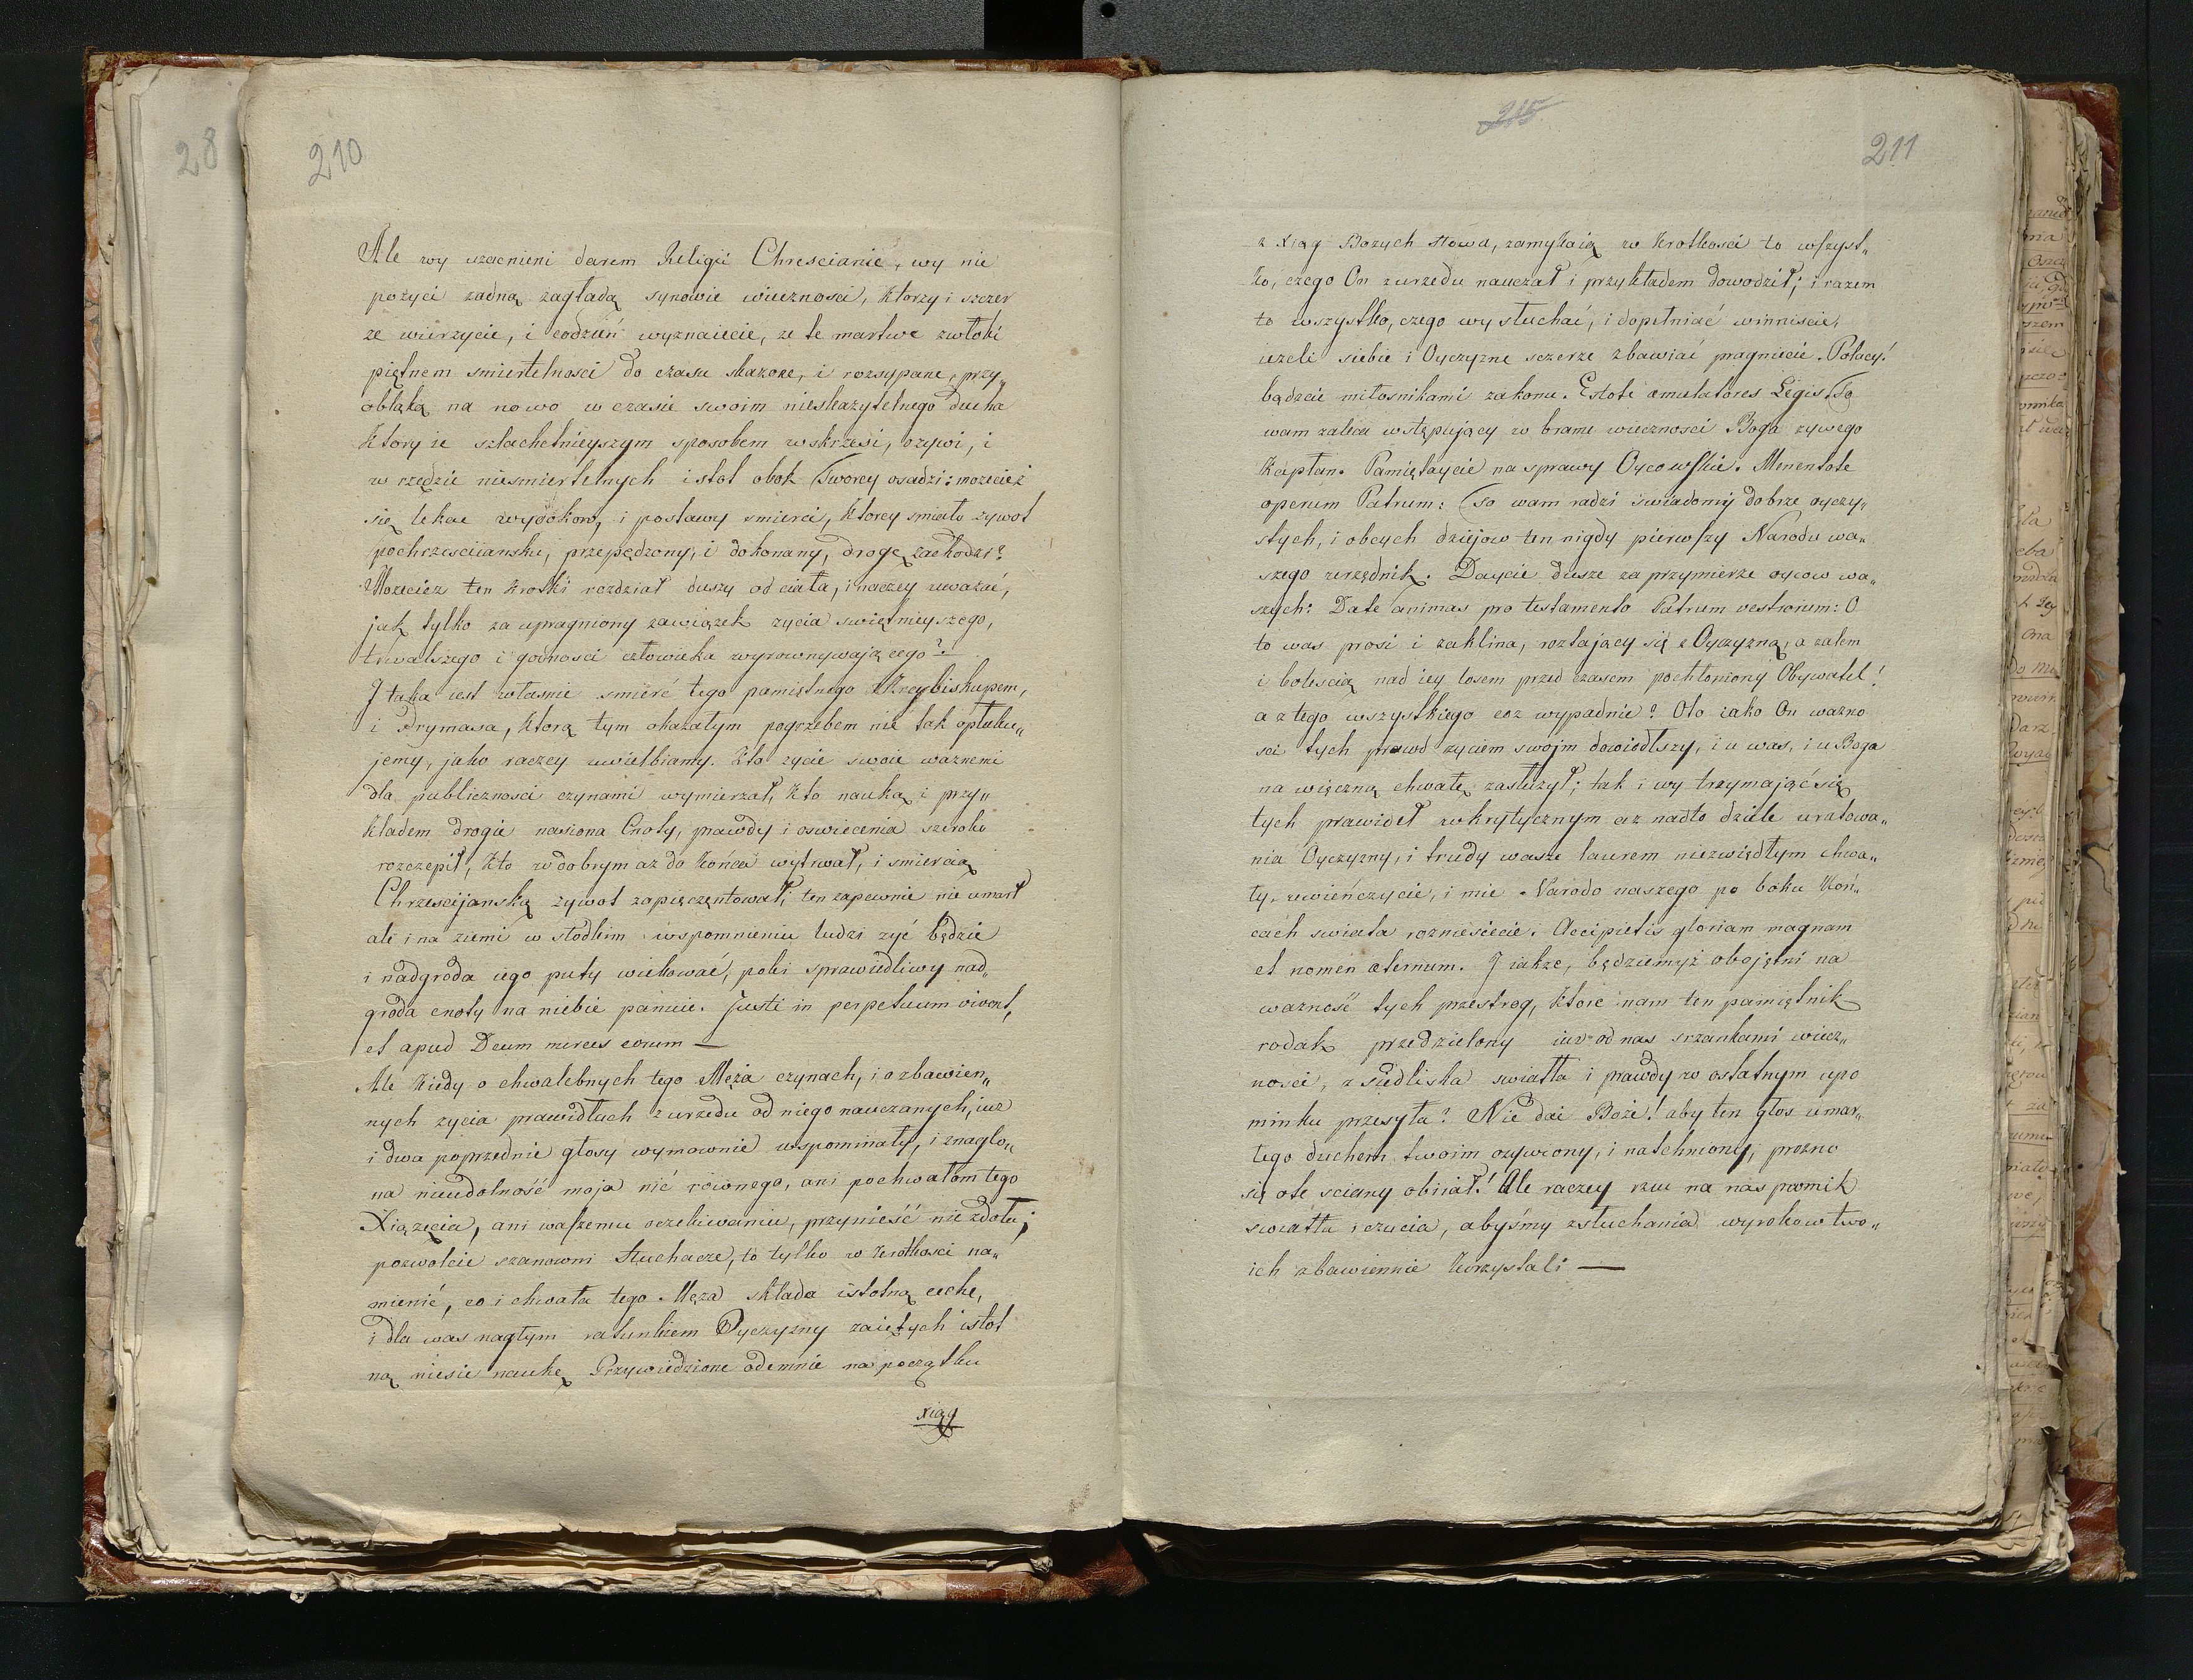 28
210
Ale wy uzacnieni darem Religii Chrescianie, wy nie
pozyci zadną zagładą synowie wieczności, ktorzy i szczer
ze wierzycie, i codzień wyznaiecie, ze te martwe zwłoki
piętnem smiertelnosci do czasu skazone, i rozsypane, przy„
obłąką na nowo w czasie swoim nieskazytelnego ducha
ktory ie szlachetnieyszym sposobem wskrzesi, ozywi, i
w rzędzie niesmiertelnych istot obok Tworcy osadzi: mozecież
się lękac wyrokow, i postawy smierci, ktorey smiało zywot
pochrzesciiansku, przepędzony, i dokonany, drogę zachodzi?
Mozecież ten krotki rozdział duszy od ciała, inaczey uwazać,
jak tylko za upragniony zawiązek zycia swiętnieyszego,
trwalszego i godnosci człowieka wyrownywającego?
I taka iest własnie smierć tego pamiętnego Arcybiskupem,
i Prymasa, ktorą tym okazałym pogrzebem nie tak opłaku„
jemy, jako raczey uwielbiamy. Kto zycie swoie waznemi
dla publicznosci czynami wymierzał, kto nauką i przy„
kładem drogie nasiona Cnoty, prawdy i oswiecenia szeroko
rozczepił, kto w dobrym az do końca wytrwał, i smiercią
Chrzescijanską zywot zapieczętował; ten zapewnie nie umarł
ale i na ziemi w słodkim wspomnieniu ludzi zyć będzie
i nadgroda iego puty wiekować, poki sprawiedliwy nad„
groda cnoty na niebie panuie. Justi in perpetuum vivent,
et apud Deum merces eorum —
Ale kiedy o chwalebnych tego Męża czynach, i o zbawien„
nych zycia prawidłach z urzedu od niego nauczanych, iuz
i dwa poprzednie głosy wymownie wspominały, i znaglo„
na nieudolność moja nić rownego, ani pochwałom tego
Xiązęcia, ani waszemu oczekiwaniu, przynieść nie zdoła;
pozwolcie szanowni Słuchacze, to tylko w krotkosci na„
mienić, co i chwała tego Męza składa istotną cechę,
i dla was nagłym ratunkiem Oyczyzny zaiętych istot
ną niesie naukę Przywiedzione odemnie na początku
xiąg
215
211
z Xiąg Bozych słowa, zamykaią w krotkosci to wszyst„
ko, czego On z urzedu nauczał i przykładem dowodził; i razem
to wszystko, czego wy słuchać, i dopełniać winniscie,
iezeli siebie i Oyczyzne sczerze zbawiać pragniecie. Polacy!
bądzcie miłosnikami zakonu. Estote emulatores Legis. To
wam zaleca wstępujący w brame wiecznosci Boga zywego
Kapłan. Pamiętaycie na sprawy Oycowskie. Mementote
operum Patrum: To wam radzi swiadomy dobrze oyczy„
stych, i obcych dziejow ten nigdy pierwszy Narodu wa„
szego urzędnik. Daycie dusze za przymierze oycow wa„
szych: Date animas pro testamento Patrum vestrorum: O
to was prosi i zaklina, rozłający się z Oyczyzną, a załem
i bolescią nad iey losem przed czasem pochłoniony Obywatel!
a z tego wszystkiego coz wypadnie? Oto iako On wazno
sci tych prawd zyciem swojm dowiodłszy, i u was, i u Boga
na wieczną chwałę zasłuzył; tak i wy trzymającsię
tych prawideł wkrytycznym az nadto dziele uratowa„
nia Oyczyzny, i trudy wasze laurem niezwiędłym chwa„
ły, uwieńczycie, i mie Narodo naszego po boku Koń„
cach swiata rozniesiecie. Accipietis gloriam magnam
et nomen æternum. I iakze, będziemyż obojętni na
wazność tych przestrog, ktore nam ten pamiętnik
rodak przedzielony iuz od nas szrankami wiecz„
nosci, z siedliska swiatła i prawdy w ostatnym upo
minku przesyła? Nie dai Boże! aby ten głos umar„
łego duchem twoim ozywiony, i natchniony, prozno
się ote sciany obiiał! Ale raczey rzuc na nas promik
swiatła i czucia, abyśmy zsłuchania wyrokow two„
ich zbawiennie korzystali —